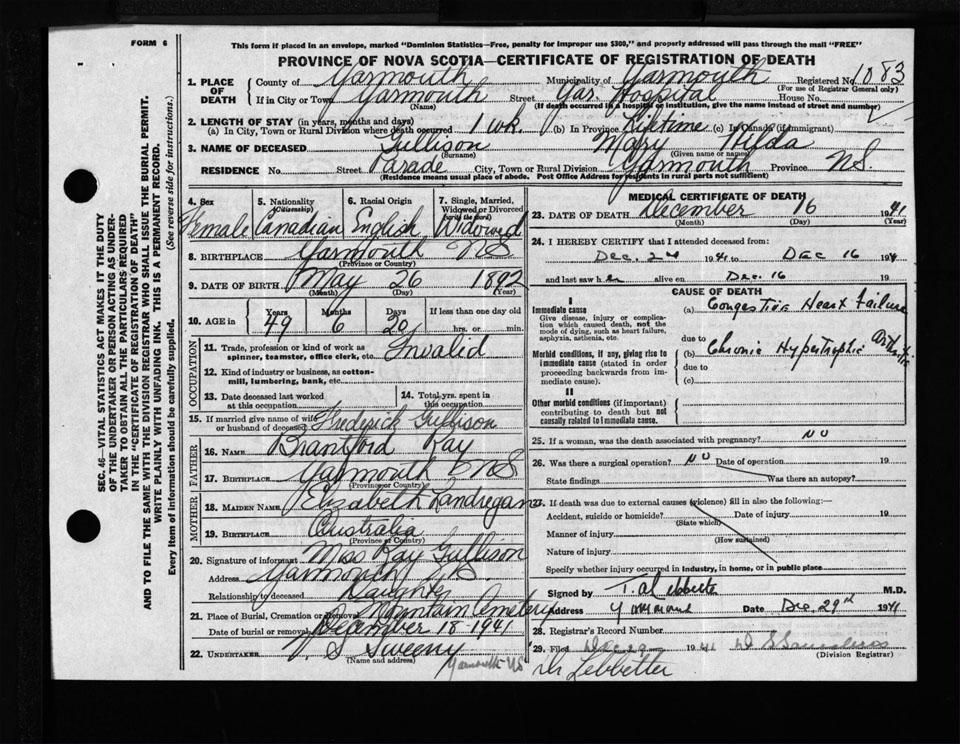 FORM 6
This form if placed in an envelope, marked "Dominion Statistics—Free, penalty for improper use $300," and properly addressed will pass through the mail "FREE"
PROVINCE OF NOVA SCOTIA—CERTIFICATE OF REGISTRATION OF DEATH
1. PLACE OF DEATH County of Yarmouth Municipality of Yarmouth Registered No. 1083
(For use of Registrar General only)
If in City or Town Yarmouth Street Yar. Hospital House No.
(Name) (If death occurred in a hospital or institution, give the name instead of street and number)
2. LENGTH OF STAY (in years, months and days)
(a) In City, Town or Rural Division where death occurred 1 wk. (b) In Province Lifetime (c) In Canada (if immigrant)
3. NAME OF DECEASED Gullison Mary Hilda
(Surname) (Given name or names)
RESIDENCE No. Street Parade City, Town or Rural Division Yarmouth Province NS
(Residence means usual place of abode. Post Office Address for residents in rural parts not sufficient)
4. Sex Female
5. Nationality (Citizenship) Canadian
6. Racial Origin English
7. Single, Married, Widowed or Divorced (write the word) Widowed
8. BIRTHPLACE Yarmouth NS
(Province or Country)
9. DATE OF BIRTH May 26 1892
(Month) (Day) (Year)
10. AGE in Years Months Days If less than one day old
49 6 20 hrs. or min.
OCCUPATION
11. Trade, profession or kind of work as spinner, teamster, office clerk, etc. Invalid
12. Kind of industry or business, as cotton-mill, lumbering, bank, etc.
13. Date deceased last worked at this occupation
14. Total yrs. spent in this occupation
15. If married give name of wife or husband of deceased Frederick Gullison
FATHER
16. NAME Brantford Ray
17. BIRTHPLACE Yarmouth NS
(Province or Country)
MOTHER
18. MAIDEN NAME Elizabeth Landregan
19. BIRTHPLACE Australia
(Province or Country)
20. Signature of informant Miss Ray Gullison
Address Yarmouth NS
Relationship to deceased Daughter
21. Place of Burial, Cremation or Removal Mountain Cemetery
Date of burial or removal December 18 1941
22. UNDERTAKER V S Sweeny
(Name and address) Yarmouth NS
MEDICAL CERTIFICATE OF DEATH
23. DATE OF DEATH December 16 1941
(Month) (Day) (Year)
24. I HEREBY CERTIFY that I attended deceased from:
Dec. 2nd 1941 to Dec 16 1941
and last saw her alive on Dec. 16 19
CAUSE OF DEATH
I
Immediate cause (a) Congestive Heart Failure
Give disease, injury or complication which caused death, not the mode of dying, such as heart failure, asphyxia, asthenia, etc.
due to
Morbid conditions, if any, giving rise to immediate cause (stated in order proceeding backwards from immediate cause).
(b) Chronic Hypertrophic Arthritis
due to
(c)
II
Other morbid conditions (if important) contributing to death but not causally related to immediate cause.
25. If a woman, was the death associated with pregnancy? NO
26. Was there a surgical operation? NO Date of operation 19
State findings Was there an autopsy?
27. If death was due to external causes (violence) fill in also the following:—
Accident, suicide or homicide? Date of injury 19
(State which)
Manner of injury
(How sustained)
Nature of injury
Specify whether injury occurred in industry, in home, or in public place
Signed by T. A. Lebbetter M.D.
Address Yarmouth Date Dec. 29th 1941
28. Registrar's Record Number
29. Filed 1941
(Division Registrar)
Dr Lebbetter
SEC. 46—VITAL STATISTICS ACT MAKES IT THE DUTY
OF THE UNDERTAKER OR PERSON ACTING AS UNDER-
TAKER TO OBTAIN ALL THE PARTICULARS REQUIRED
IN THE "CERTIFICATE OF REGISTRATION OF DEATH"
AND TO FILE THE SAME WITH THE DIVISION REGISTRAR WHO SHALL ISSUE THE BURIAL PERMIT.
WRITE PLAINLY WITH UNFADING INK. THIS IS A PERMANENT RECORD.
Every item of information should be carefully supplied. (See reverse side for instructions.)